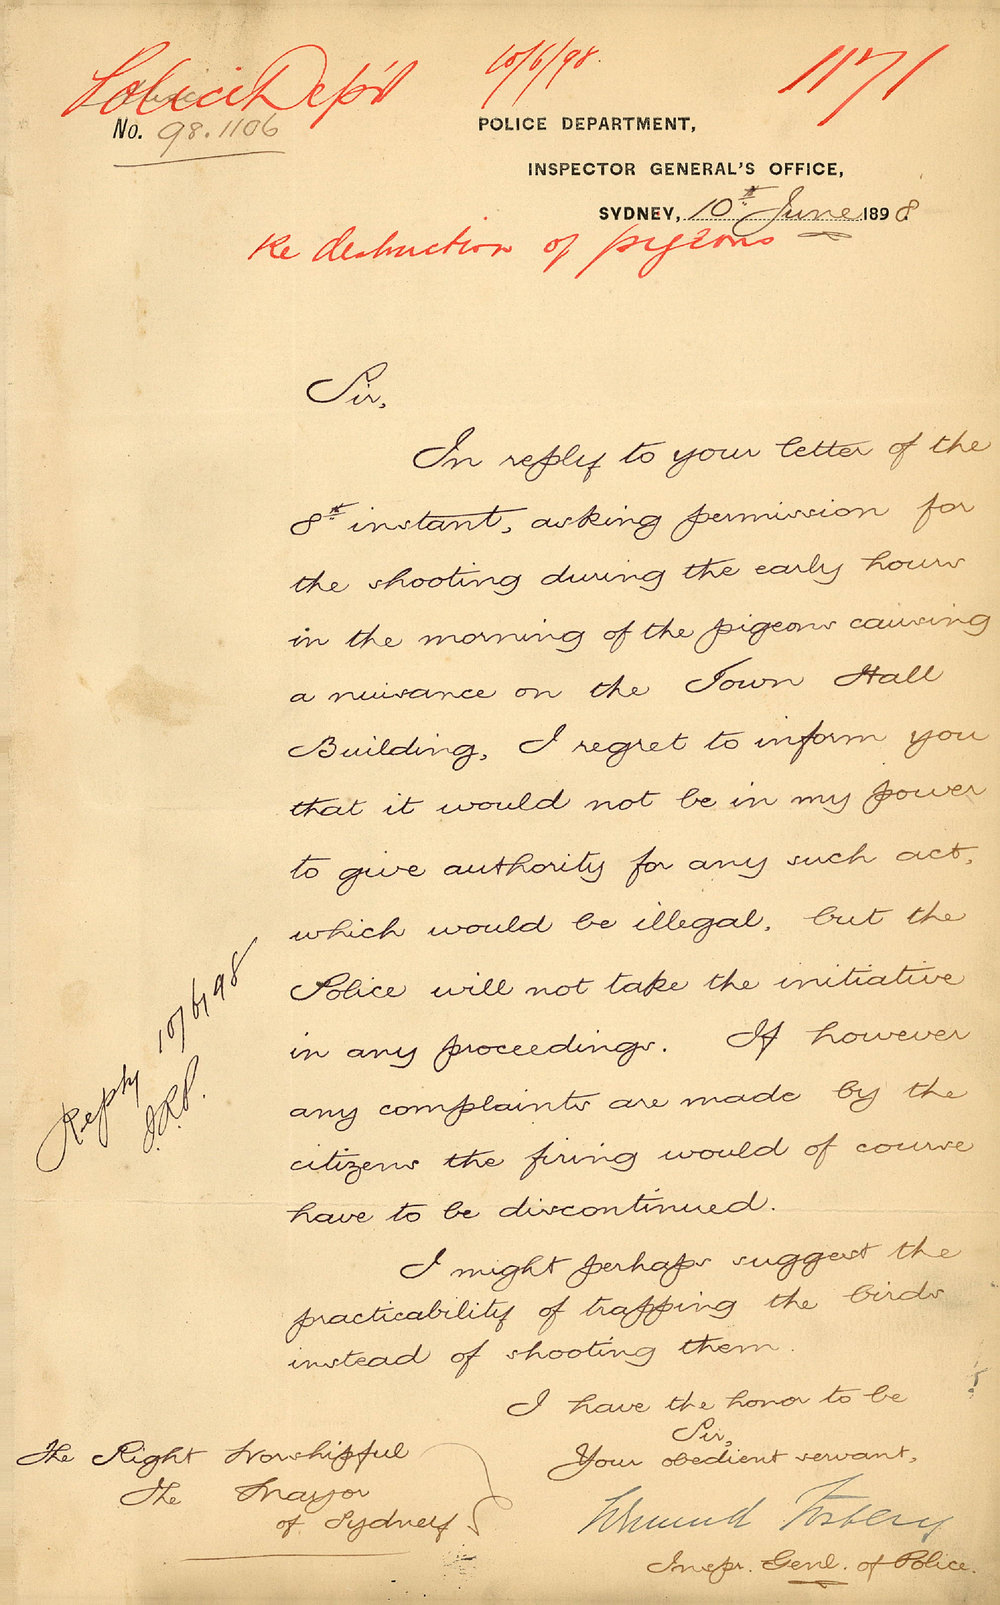 Police Dep't
10/6/98.
1171
No. 98.1106
POLICE DEPARTMENT,
INSPECTOR GENERAL'S OFFICE,
SYDNEY, 10th June 1898.
Re destruction of pigeons
Sir,
In reply to your letter of the
8th instant, asking permission for
the shooting during the early hours
in the morning of the pigeons causing
a nuisance on the Town Hall
Building, I regret to inform you
that it would not be in my power
to give authority for any such act,
which would be illegal, but the
Police will not take the initiative
in any proceedings. If however
any complaints are made by the
citizens the firing would of course
have to be discontinued.
I might perhaps suggest the
practicability of trapping the birds
instead of shooting them.
I have the honor to be
Sir,
Your obedient servant,
Edmund Fosbery
Inspr. Genl. of Police.
The Right Worshipful
The Mayor
of Sydney
Reply 10/6/98